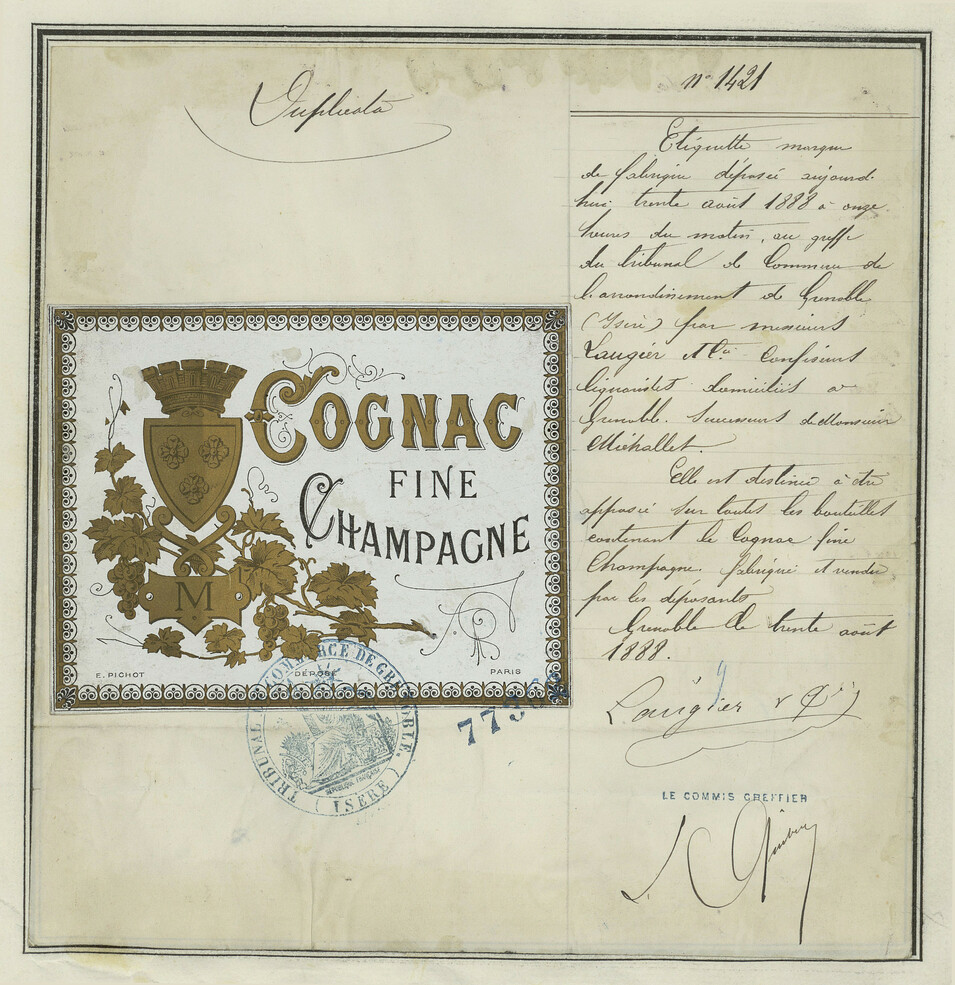 Duplicata
n° 1421
Etiquette marque
de fabrique déposée aujourd-
hui trente août 1888 à onze
heures du matin, au greffe
du tribunal de Commerce de
l'arrondissement de Grenoble
(Isère) par messieurs
Laugier et Cie Confiseurs
Liquoristes domiciliés à
Grenoble. Successeurs de Monsieur
Michallet.
Elle est destinée à être
apposée sur toutes les bouteilles
contenant le Cognac fine
Champagne. fabriqué et vendu
par les déposants
Grenoble le trente août
1888.
Laugier & Cie
LE COMMIS GREFFIER
COGNAC
FINE
CHAMPAGNE
M
E. PICHOT
DÉPOSÉ
PARIS
TRIBUNAL DE COMMERCE DE GRENOBLE.
(ISÈRE)
REPUBLIQUE FRANÇAISE